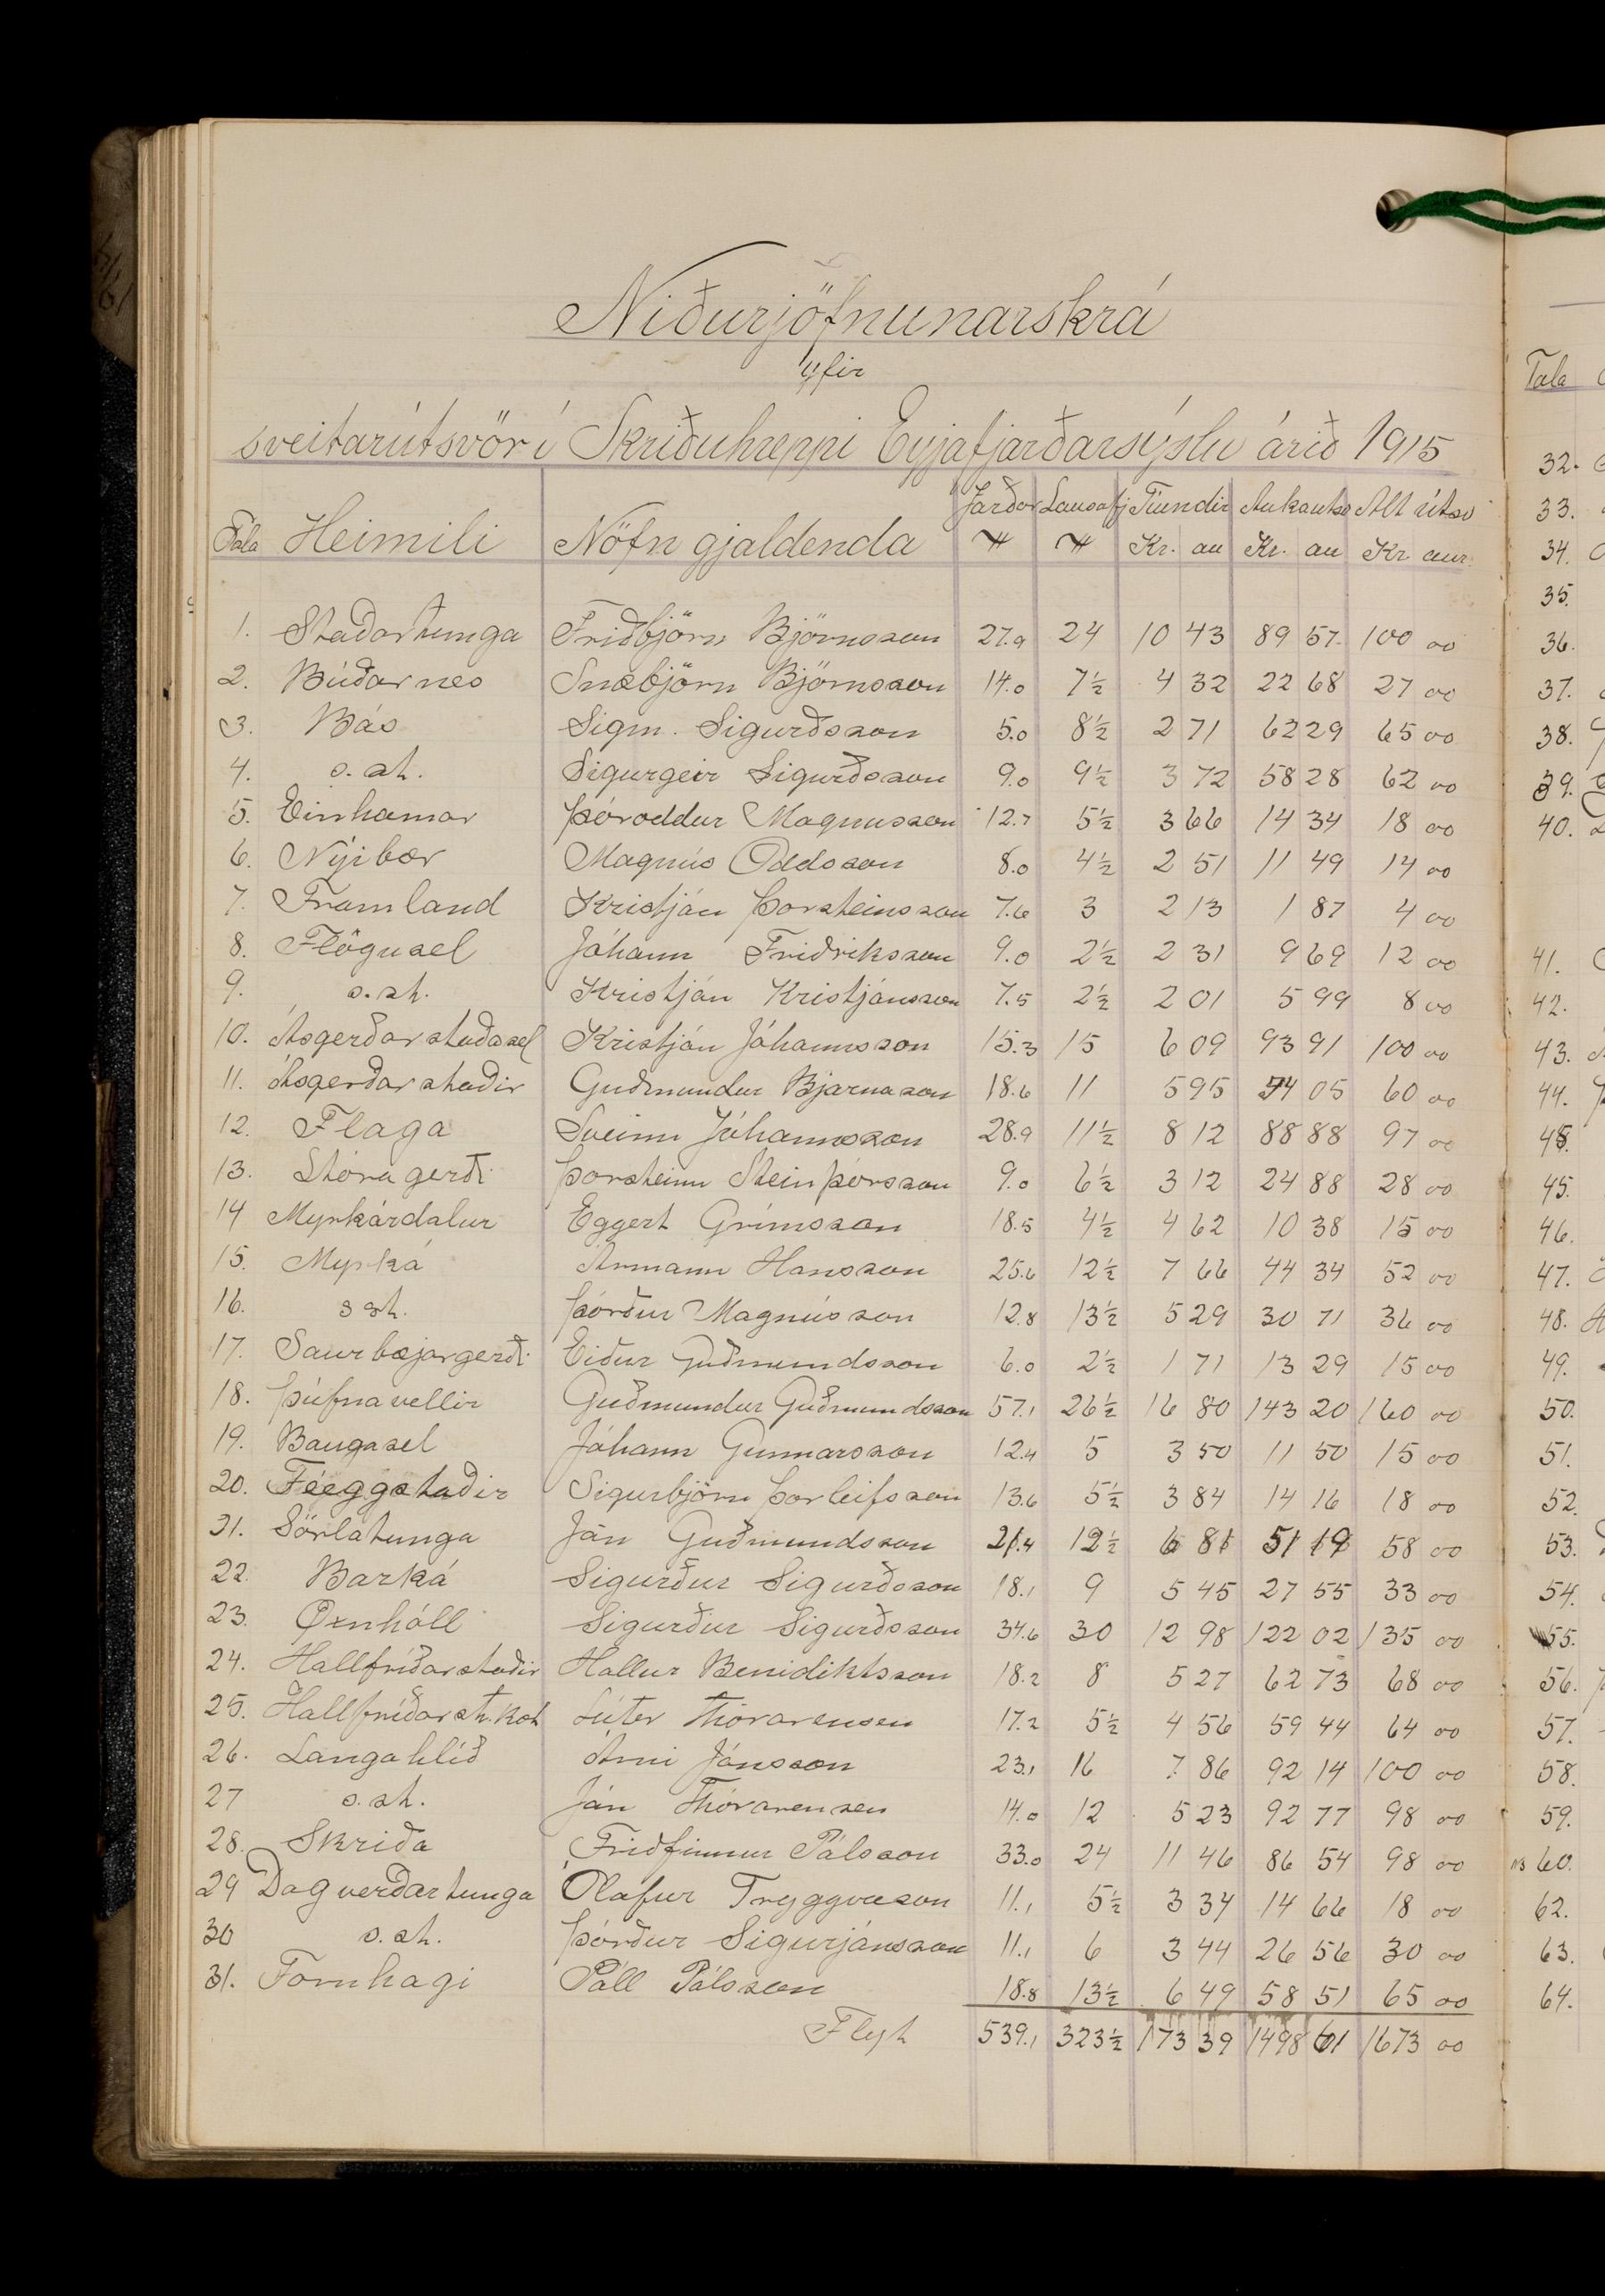 Niðurjöfnunarskrá
yfir
sveitarútsvör í Skriðuhreppi Eyjafjarðarsýslu árið 1915
Tala Heimili Nöfn gjaldenda Jarðar Lausafj Tíundir Aukaútsv Alt útsv
Kr. au Kr. au Kr. aur.
1. Staðartunga Friðbjörn Björnsson 27.9 24 10 43 89 57 100 00
2. Búðarnes Snæbjörn Björnsson 14.0 7½ 4 32 22 68 27 00
3. Bás Sigm. Sigurðsson 5.0 8½ 2 71 62 29 65 00
4. s. st. Sigurgeir Sigurðsson 9.0 9½ 3 72 58 28 62 00
5. Einhamar Þóroddur Magnusson 12.7 5½ 3 66 14 34 18 00
6. Nýibær Magnús Oddsson 8.0 4½ 2 51 11 49 14 00
7. Framland Kristján Þorsteinsson 7.6 3 2 13 1 87 4 00
8. Flögusel Jóhann Friðriksson 9.0 2½ 2 31 9 69 12 00
9. s. st. Kristján Kristjánsson 7.5 2½ 2 01 5 99 8 00
10. Ásgerðarstaðasel Kristján Jóhannsson 15.3 15 6 09 93 91 100 00
11. Ásgerðarstaðir Guðmundur Bjarnason 18.6 11 5 95 54 05 60 00
12. Flaga Sveinn Jóhannsson 28.9 11½ 8 12 88 88 97 00
13. Stóragerði Þorsteinn Steinþórsson 9.0 6½ 3 12 24 88 28 00
14 Myrkárdalur Eggert Grímsson 18.5 4½ 4 62 10 38 15 00
15. Myrká Ármann Hansson 25.6 12½ 7 66 44 34 52 00
16. s st. Þórður Magnússon 12.8 13½ 5 29 30 71 36 00
17. Saurbæjargerði Eiður Guðmundsson 6.0 2½ 1 71 13 29 15 00
18. Þúfnavellir Guðmundur Guðmundsson 57.1 26½ 16 80 143 20 160 00
19. Baugasel Jóhann Gunnarsson 12.4 5 3 50 11 50 15 00
20. Féeggstaðir Sigurbjörn Þorleifsson 13.6 5½ 3 84 14 16 18 00
21. Sörlatunga Ján Guðmundsson 21.4 12½ 6 81 51 19 58 00
22. Barká Sigurður Sigurðsson 18.1 9 5 45 27 55 33 00
23. Öxnhóll Sigurður Sigurðsson 34.6 30 12 98 122 02 135 00
24. Hallfríðarstaðir Hallur Benidiktsson 18.2 8 5 27 62 73 68 00
25. Hallfríðarst.kot Lúter Thórarensen 17.2 5½ 4 56 59 44 64 00
26. Langahlíð Árni Jónsson 23.1 16 7 86 92 14 100 00
27 s. st. Ján Thórarensen 14.0 12 5 23 92 77 98 00
28. Skriða Friðfinnur Pálsson 33.0 24 11 46 86 54 98 00
29 Dagverðartunga Ólafur Tryggvason 11.1 5½ 3 34 14 66 18 00
30 s. st. Þórður Sigurjánsson 11.1 6 3 44 26 56 30 00
31. Fornhagi Páll Pálsson 18.8 13½ 6 49 58 51 65 00
Flyt 539.1 323½ 173 39 1498 61 1673 00
Tala
32.
33.
34.
35.
36.
37.
38.
39.
40.
41.
42.
43.
44.
45.
45.
46.
47.
48.
49.
50.
51.
52.
53.
54.
55.
56.
57.
58.
59.
60.
62.
63.
64.